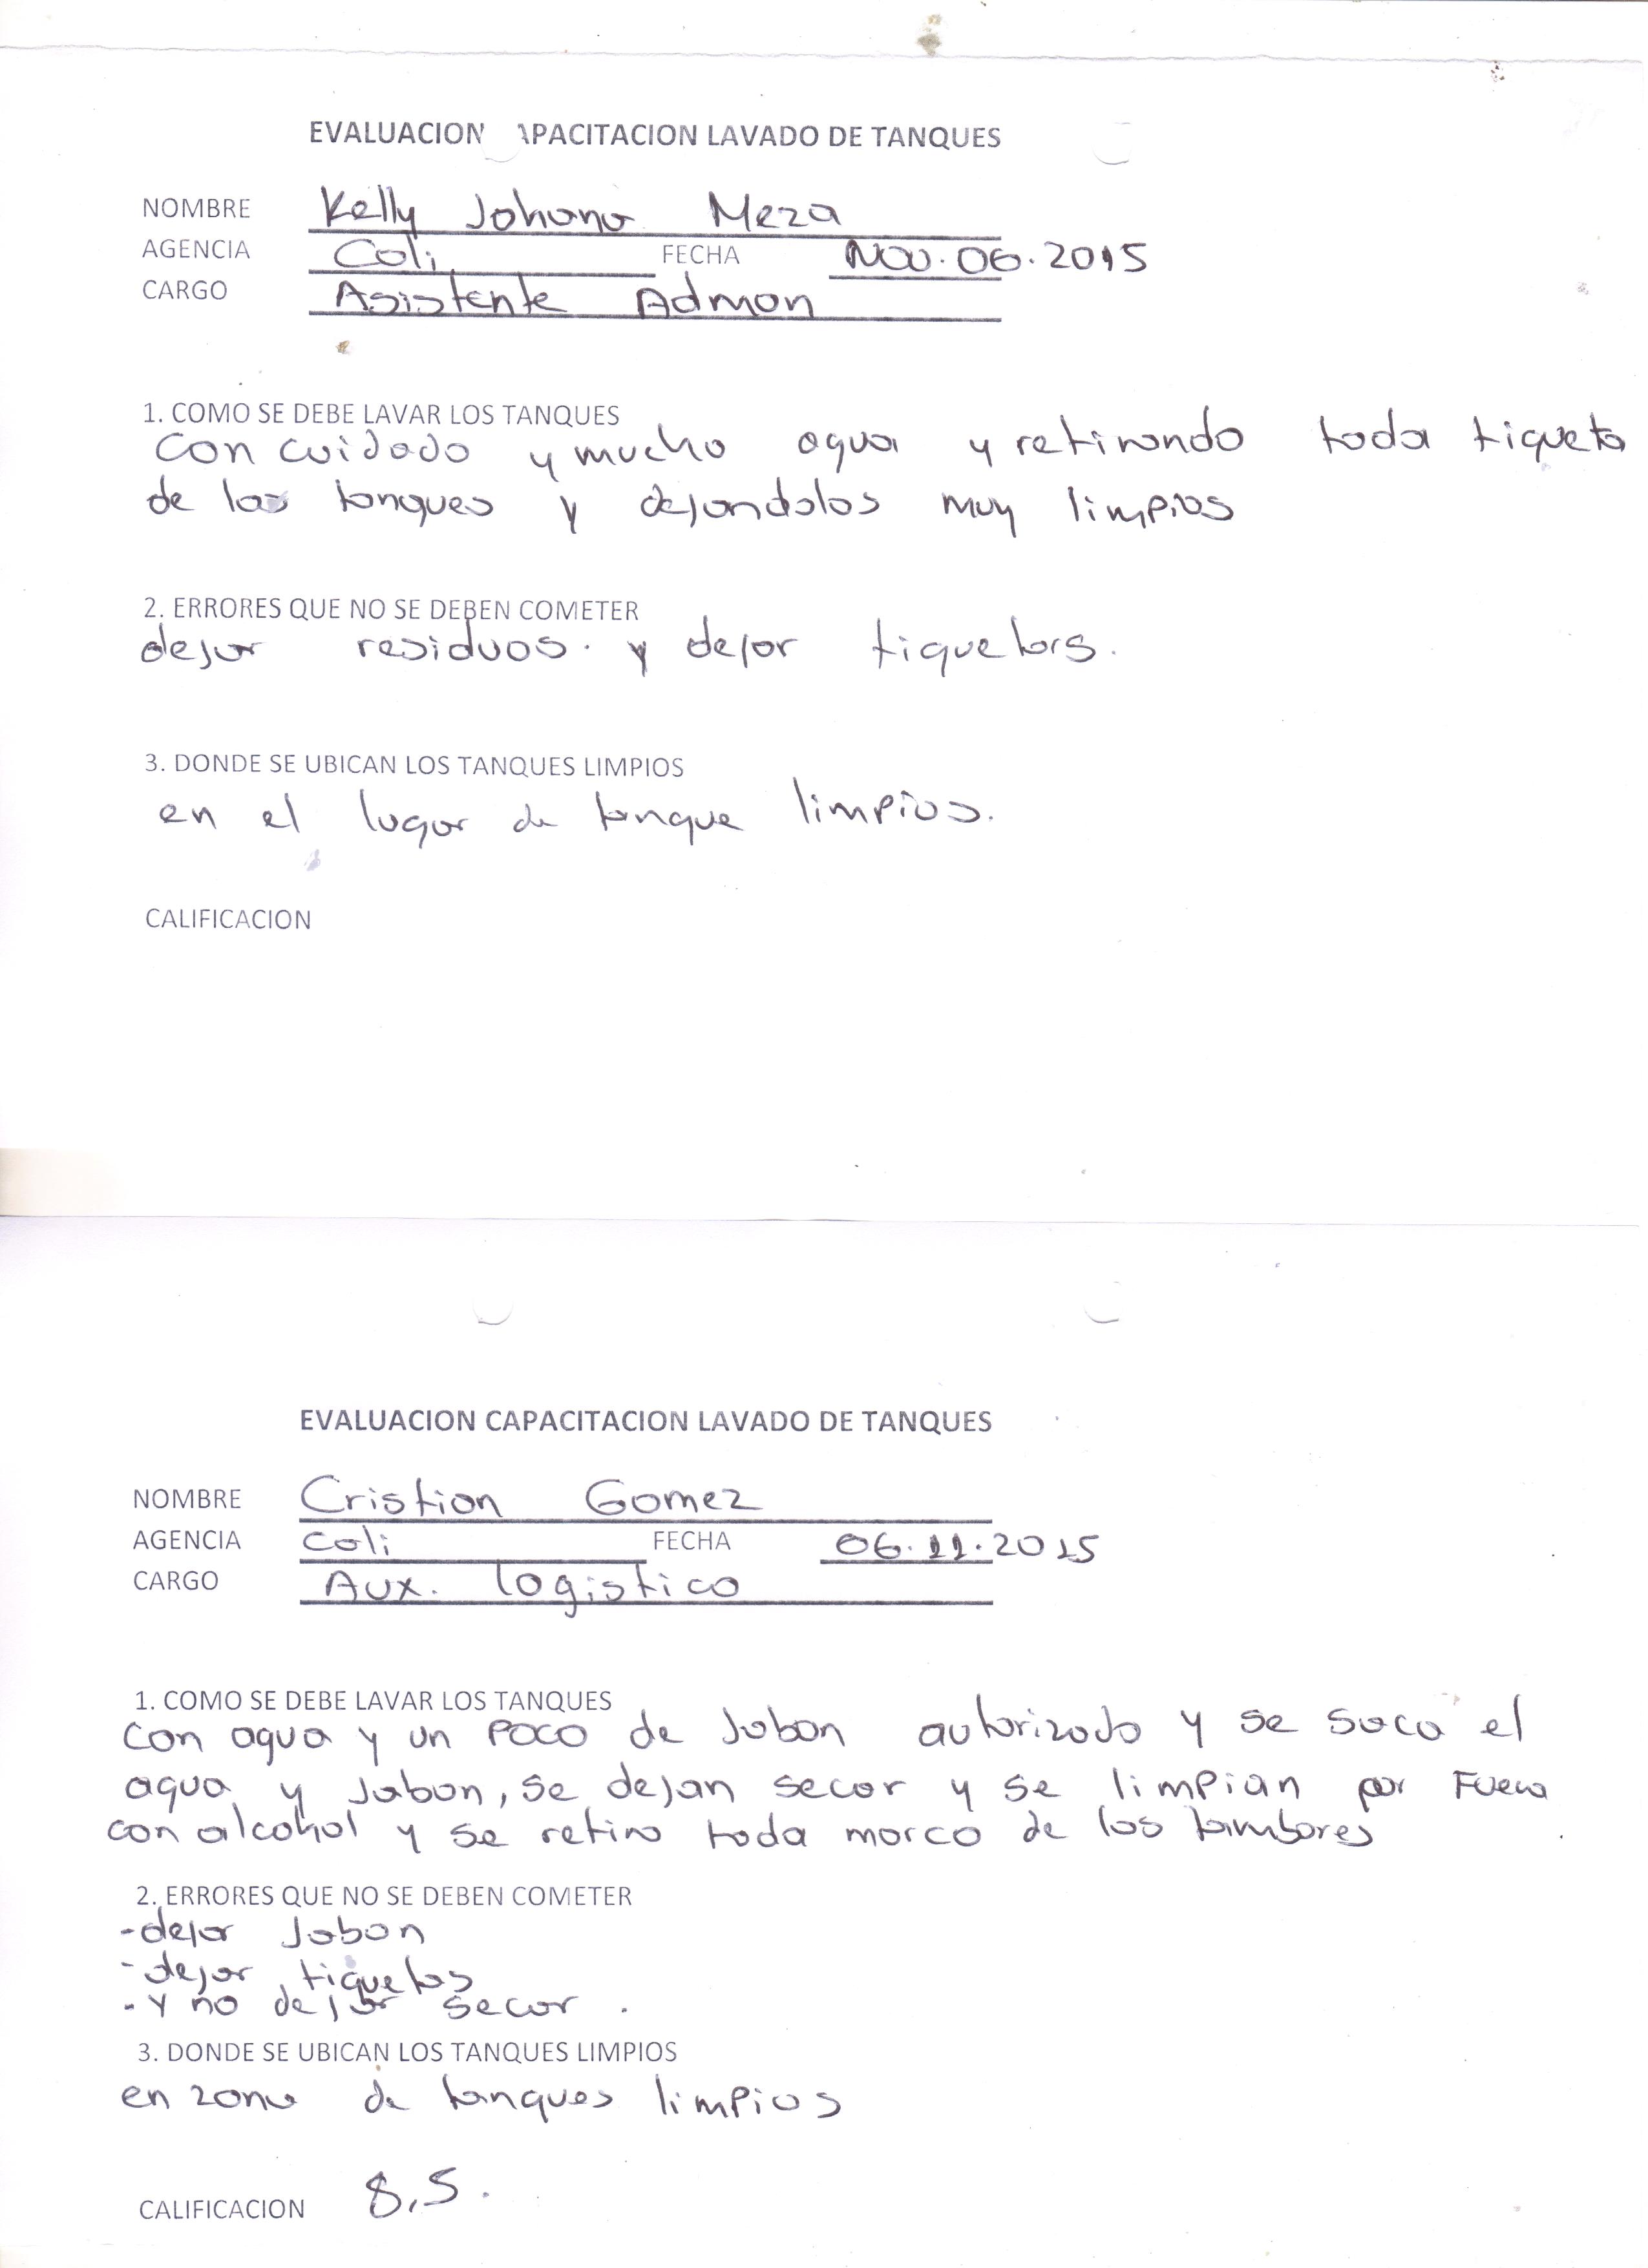 EVALUACION APACITACION LAVADO DE TANQUES
NOMBRE Kelly Johana Meza
AGENCIA Cali FECHA Nov. 06. 2015
CARGO Asistente Admon
1. COMO SE DEBE LAVAR LOS TANQUES
con cuidado y mucho agua y retirando toda tiqueta
de las tanques y dejandolos muy limpios
2. ERRORES QUE NO SE DEBEN COMETER
dejar residuos. y dejar tiquetas.
3. DONDE SE UBICAN LOS TANQUES LIMPIOS
en el lugar de tanque limpios.
CALIFICACION
EVALUACION CAPACITACION LAVADO DE TANQUES
NOMBRE Cristian Gomez
AGENCIA Cali FECHA 06.11.2015
CARGO Aux. logistico
1. COMO SE DEBE LAVAR LOS TANQUES
con agua y un Poco de Jabon autorizado y se saca el
agua y Jabon, se dejan secar y se limpian por Fuera
con alcohol y se retira toda marca de los tambores
2. ERRORES QUE NO SE DEBEN COMETER
-dejar Jabon
-dejar tiquetas
-Y no dejar secar.
3. DONDE SE UBICAN LOS TANQUES LIMPIOS
en zona de tanques limpios
CALIFICACION 8,5.